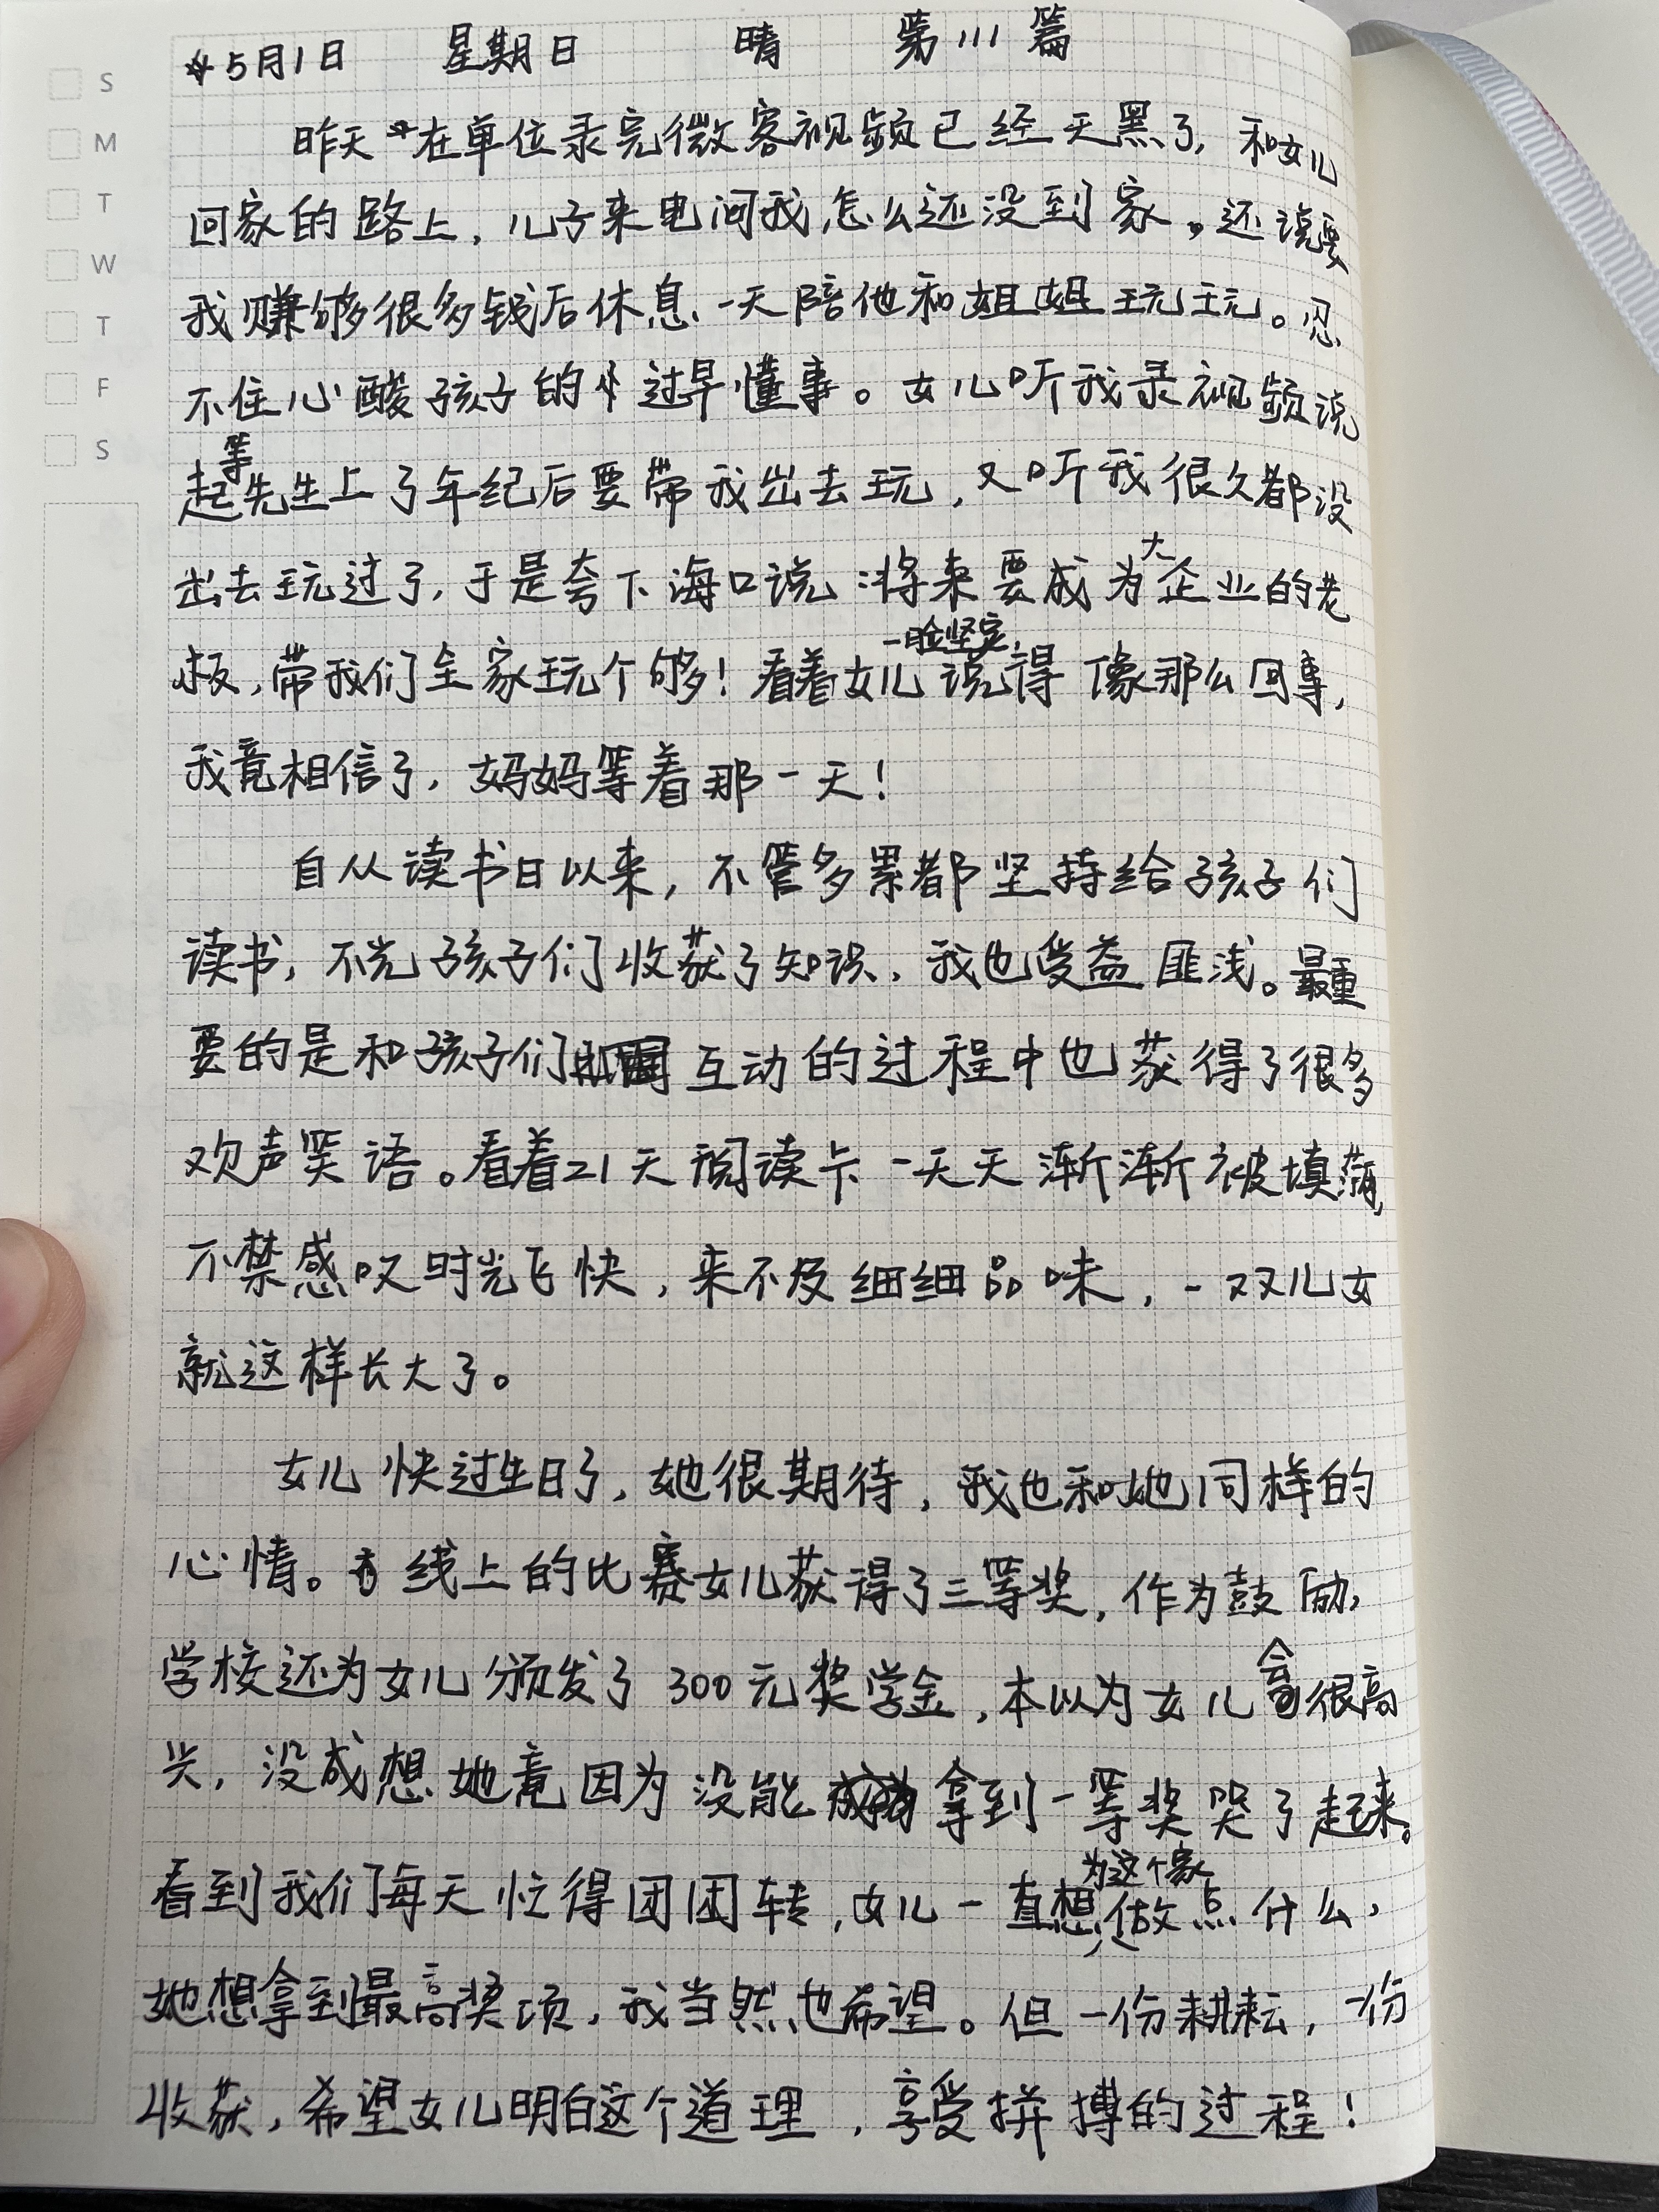 5月1日 星期日 晴 第111篇
S
M
T
W
T
F
S
昨天在单位录完微客视频已经天黑了,和女儿
回家的路上,儿子来电问我怎么还没到家。还说要
我赚够很多钱后休息一天陪他和姐姐玩玩。忍
不住心酸孩子的过早懂事。女儿听我录视频说
起等先生上了年纪后要带我出去玩,又听我很久都没
出去玩过了,于是夸下海口说:将来要成为大企业的老
板,带我们全家玩个够!看着女儿一脸坚定,说得像那么回事,
我竟相信了,妈妈等着那一天!
自从读书日以来,不管多累都坚持给孩子们
读书,不光孩子们收获了知识,我也受益匪浅。最重
要的是和孩子们互动的过程中也获得了很多
欢声笑语。看着21天阅读卡一天天渐渐被填满,
不禁感叹时光飞快,来不及细细品味,一双儿女
就这样长大了。
女儿快过生日了,她很期待,我也和她同样的
心情。线上的比赛女儿获得了三等奖,作为鼓励,
学校还为女儿颁发了300元奖学金,本以为女儿会很高
兴,没成想她竟因为没能拿到一等奖哭了起来。
看到我们每天忙得团团转,女儿一直想为这个家做点什么,
她想拿到最高奖项,我当然也希望。但一份耕耘,一份
收获,希望女儿明白这个道理,享受拼搏的过程!